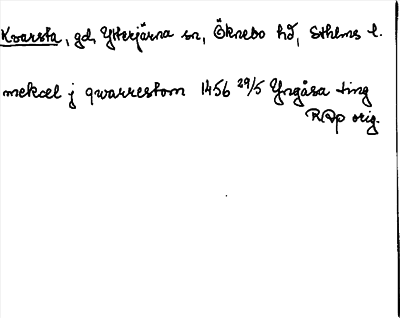 Kvarsta, gd, Ytterjärna sn, Öknebo hd, Sthlms l.
mekæl j qwarrestom 1456 29/5 Yngåsa ting
RAp orig.